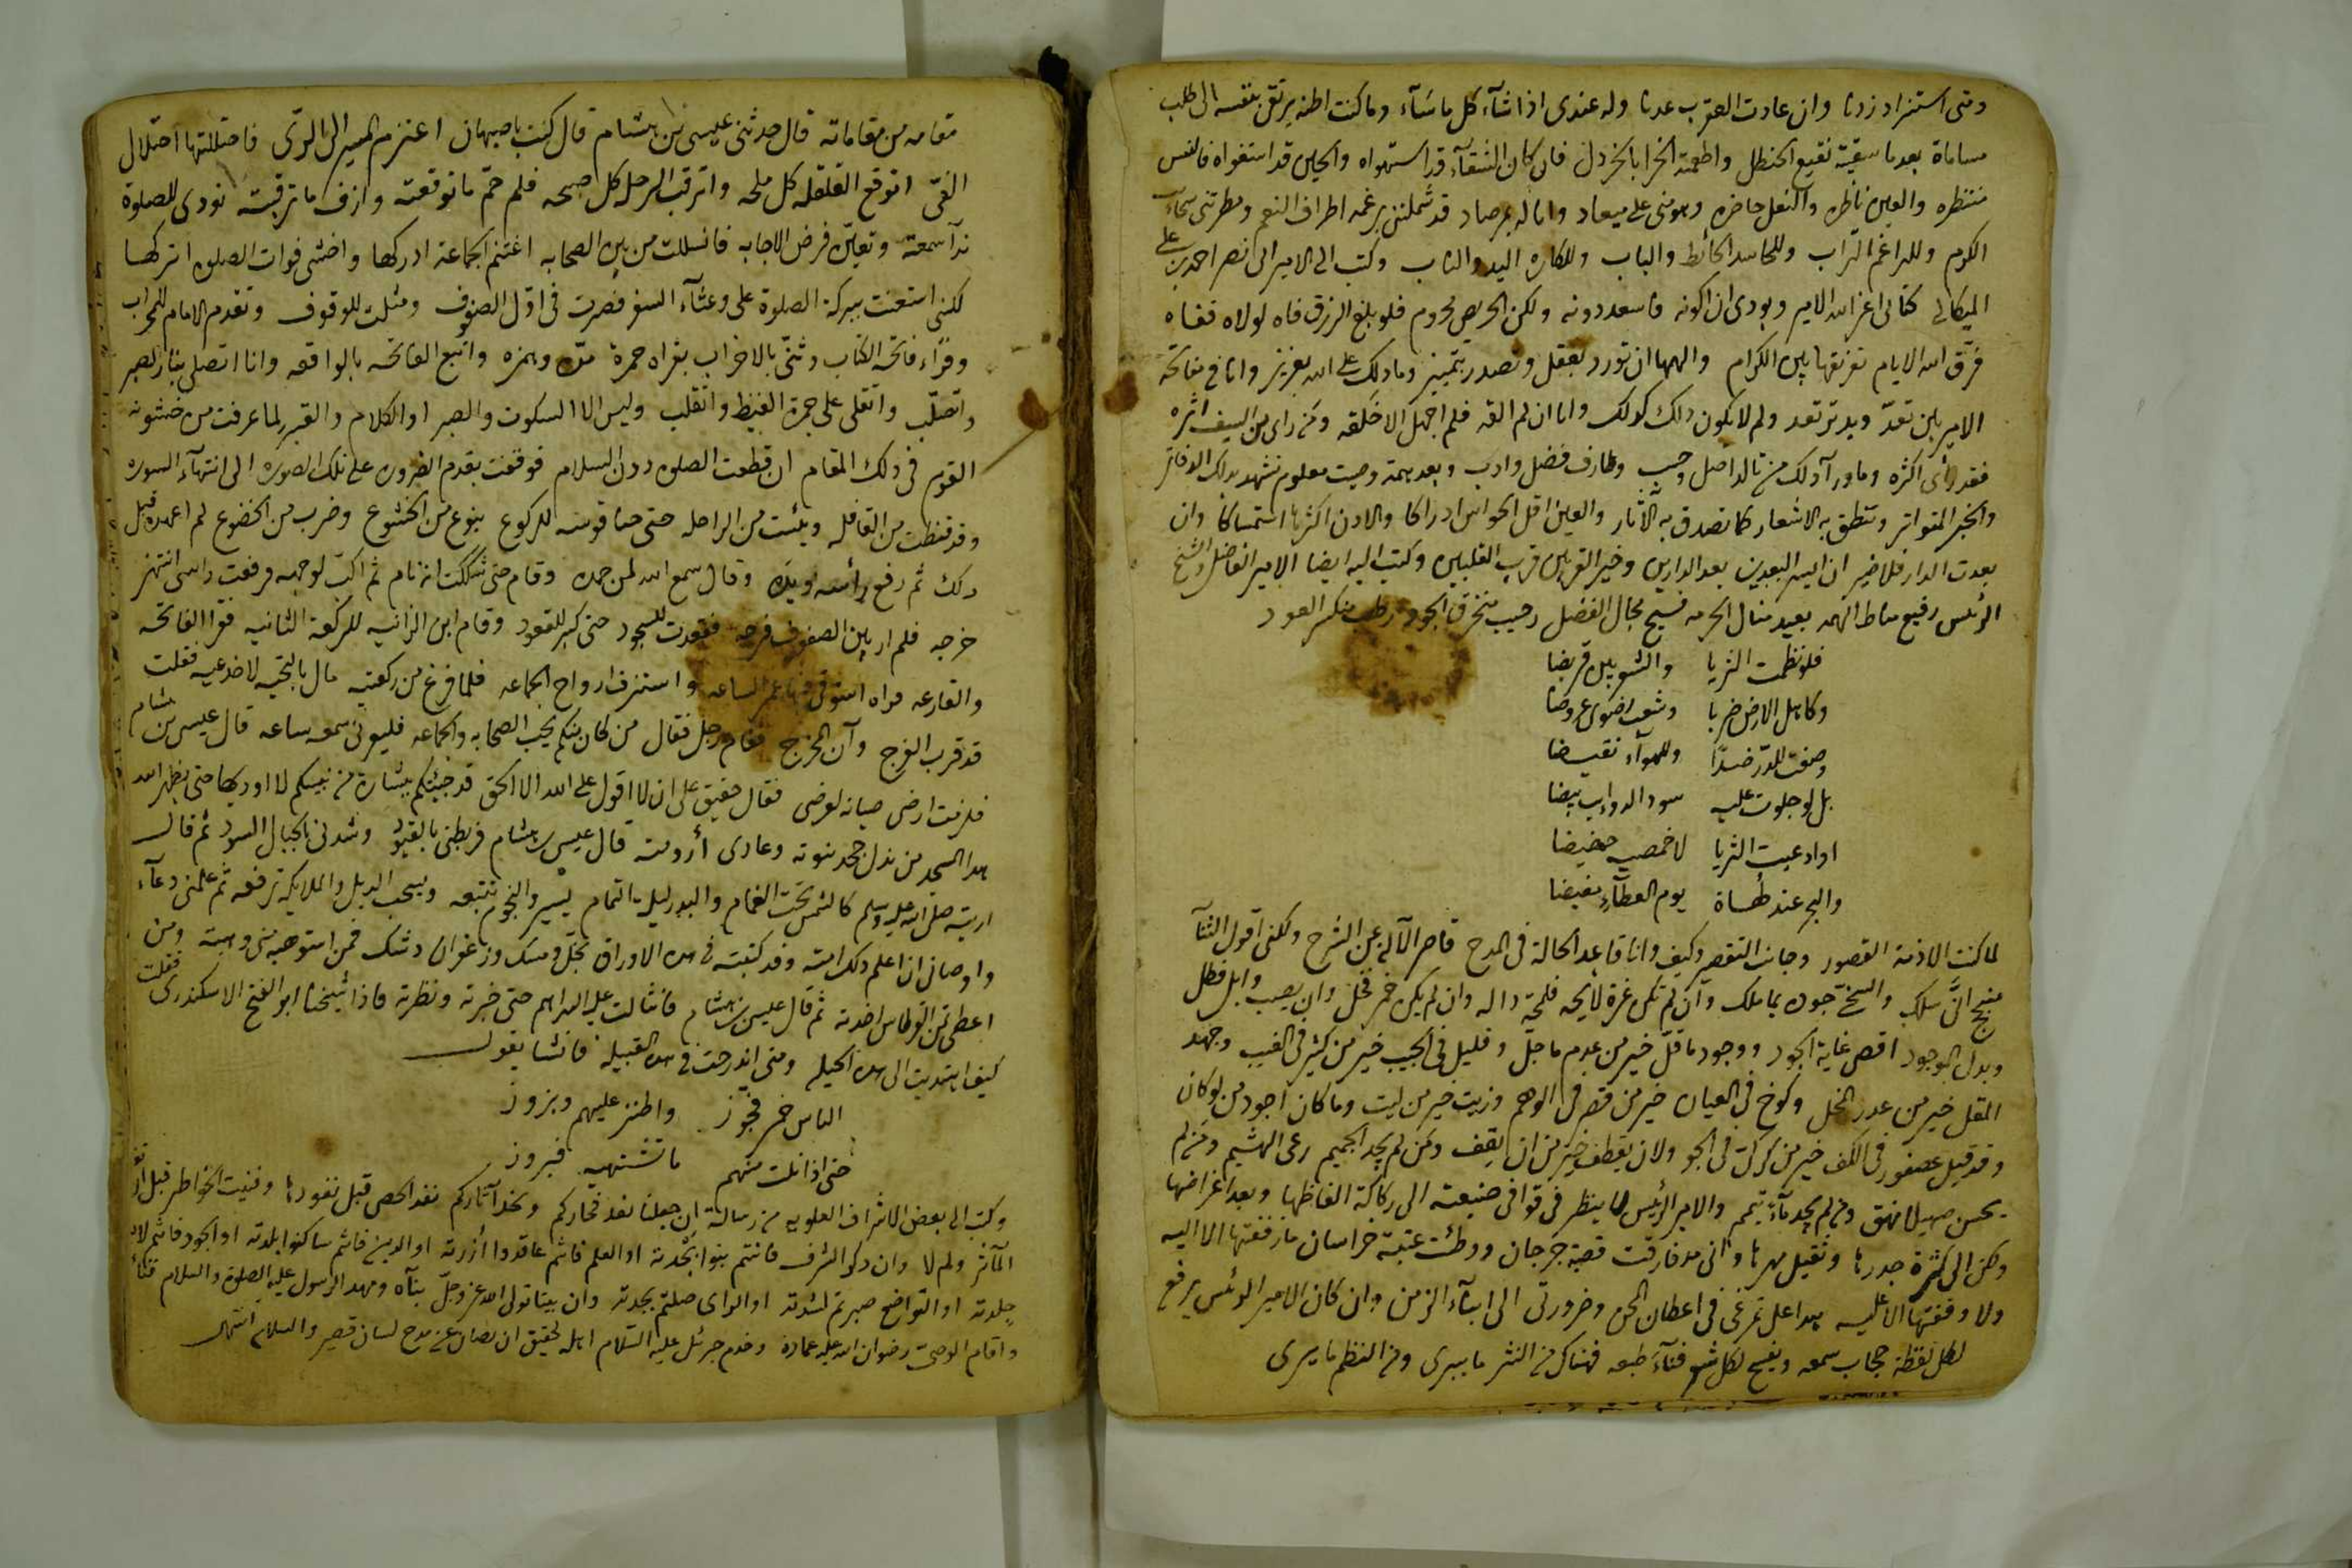 ومتى استزاد زدنا وان عادت العقرب عدنا وله عندى اذا شآء كل ما سآء وما كنت اظنه يرتقى بنفسه الى طلب
مساماة بعد ما سقيته نقيع الحنظل واطعمته الخرا بالخردل فان كان الشقآء قد استهواه والحين قد استغواه فالنفس
منتظره والعين ناظره والنعل حاضره وهو منى على ميعاد وانا له بمرصاد قد شملتنى برغمه اطراف النعم ومطرتنى سحآب
الكرم وللراغم التراب وللحاسد الحائط والباب وللكاره اليد والناب وكتب الى الامير ابى نصر احمد بن على
الميكالى كتابى اعز الله الامير وبودى ان اكونه فاسعد دونه ولكن الحريص محروم فلو بلغ الرزق فاه لولاه قفاه
فرّق الله الايام تفريقها بين الكرام والهمها ان تورد بعقل وتصدر بتمييز وما ذلك على الله بعزيز وانا فى مفاتحة
الامير بين ثقة ويد ترتعد ولم لا يكون ذلك كذلك وانا ان لم القه فلم اجهل الا خلقه ومن راى من السيف اثره
فقد رأى اكثره وما ورآ ذلك من تالد اصل وحسب وطارف فضل وادب وبعد همة وصيت معلوم تشهد بذلك الدفاتر
والخبر المتواتر وتنطق به الاشعار كما تصدق به الآثار والعين اقل الحواس ادراكا والاذن اكثرها استمساكا وان
بعدت الدار فلا ضير ان ايسر البعدين بعد الدارين وخير القربين قرب القلبين وكتب اليه ايضا الامير الفاضل والشيخ
الرئيس رفيع مناط الهمه بعيد منال الخرمه فسيح مجال الفضل رحيب منخرق الجود رطب مكسر العود
فلو نظمت الثريا والشعريين قريضا
وكاهل الارض ضربا وشعب رضوى عروضا
وصغت للدرّ ضدّا وللهوآء نقيضا
بل لو جلوت عليه سود الذوايب بيضا
او ادعيت الثريا لاخمصيه حضيضا
والبحر عند لهاه يوم العطآء مغيضا
لما كنت الا ذمة القصور وجانب التقصير وكيف وانا قاعد الحالة فى المدح قاصر الآلة عن الشرح ولكنى اقول الثنآ
منجح انّى سلك والسخى جوده بما ملك وان لم تكن غرة لايحه فلمحة داله وان لم يكن خمر فخل وان لم يصب وابل فطل
وبذل الموجود اقصى غاية الجود ووجود ما قلّ خير من عدم ما جلّ وقليل فى الجيب خير من كثير فى الغيب وجهد
المقل خير من عذر المخل وكوخ فى العيان خير من قصر فى الوهم وزيت خير من ليت وما كان اجود من لو كان
وقد قيل عصفور فى الكف خير من كركى فى الجو ولان يقطف خير من ان يقف ومن لم يجد الجميم رعى الهشيم ومن لم
يحسن صهيلا نهق ومن لم يجد مآءً تيمم والامير الرئيس لا ينظر فى قوافى صنيعته الى ركاكة الفاظها وبعد اغراضها
ولكن الى كثرة جدرها وثقيل مهرها وانى مذ فارقت قصبة جرجان ووطئت عتبة خراسان ما زففتها الا اليه
ولا وقفتها الا عليه هذا على تمرغى فى اعطان المحن وضرورتى الى ابنآء الزمن وان كان الامير الرئيس يرفع
لكل لفظة حجاب سمعه ويفسح لكل شعر فنآء طبعه فهناك من النثر ما يبرى ومن النظم ما يرى
مقامه من مقاماته قال حدثنى عيسى بن هشام قال كنت باصبهان اعتزم المسير الى الرى فاحتللتها احتلال
الفئ اتوقع القافله كل لمحه واترقب الرحل كل صبحه فلم حمّ ما توقعته وازف ما ترقبته نودى للصلوة
ندآ سمعته وتعيّن فرض الاجابه فانسللت من بين الصحابه اغتنم الجماعة ادركها واخشى فوات الصلوه اتركها
لكنى استعنت ببركة الصلوة على وعثآء السفر فصرت فى اوّل الصفوف ومثلت للوقوف وتقدم الامام للمحراب
وقرأ فاتحة الكتاب وثنّى بالاحزاب بقراة حمزة مدّه وهمزه واتبع الفاتحه بالواقعه وانا اتصلى بنار الصبر
واتصلّب واتقلى على جمرة الغيظ واتقلب وليس الا السكوت والصبر او الكلام والقبر لما عرفت من خشونه
القوم فى ذلك المقام ان قطعت الصلوه دون السلام فوقفت بقدم الضروره على تلك الصوره الى انتهآء السوره
وقد قنطت من القافله ويئست من الراحله حتى حنا قوسه للركوع بنوع من الخشوع وضرب من الخضوع لم اعهده قبل
ذلك ثم رفع رأسه ويده وقال سمع الله لمن حمده وقام حتى شككت انه نام ثم اكبّ لوجهه فرفعت راسى انتهز
خرجه فلم ار بين الصفوف فرجه فقعدت للسجود حتى كبر للقعود وقام ابن الزانيه للركعة الثانيه فقرا الفاتحه
والقارعه قراه استوفى فيها عمر الساعه واستنزف ارواح الجماعه فلما فرغ من ركعتيه مال بالتحيه لاخدعيه فقلت
قد قرب الفرج وآن المخرج فقام رجل فقال من كان منكم يحب الصحابه والجماعه فليعرنى سمعه ساعه قال عيسى بن هشام
فلزمت ارضى صيانه لعرضى فقال حقيق علىّ ان لا اقول على الله الا الحق قد جئتكم ببشارة من نبيكم لا اوديها حتى يطهر الله
هذا المسجد من نذل جحد نبوته وعادى أرومته قال عيسى بن هشام فربطنى بالقيود وشدنى بالحبال السود ثم قال
اريته صلى الله عليه وسلم كالشمس تحت الغمام والبدر ليلة التمام يسير والنجوم تتبعه ويسحب الذيل والملايكة ترفعه ثم علمنى دعآء
واوصانى ان اعلم ذلك امته وقد كتبته فى هذه الاوراق بخلّ ومسك وزعفران وشك فمن استوهبه منى وهبته ومن
اعطى ثمن القرطاس اخذته ثم قال عيسى بن هشام فانثالت عليه الدراهم حتى خيرته ونظرته فاذا شيخنا ابو الفتح الاسكندرى فقلت
كيف اهتديت الى هذه الحيله ومتى اندرجت فى هذه القبيله فانشا يقول
الناس حمر فجوّز واطنز عليهم وبزوز
حتى اذا نلت منهم ما تشتهيه فبروز
وكتب الى بعض الاشراف العلويه من رسالة ان جعلنا نعد فخاركم ونحد آثاركم نفد الحصى قبل نفودها وفنيت الخواطر قبل ان تعد
المآثر ولم لا وان ذكر الشرف فانتم بنوا نجدته او العلم فانتم عاقدوا أزرته او الدين فانتم ساكنوا بلدته او الجود فانتم لابسوا
جلدته او التواضع صبرتم لشدته او الراى صلتم بحدته وان بيتا تولى الله عز وجلّ بنآه ومهد الرسول عليه الصلوة والسلام فنآءه
واقام الوصى رضوان الله عليه عماده وخدم جبرئل عليه السلام اهله لحقيق ان يصان عن مدح لسان قصير والسلام انتهى